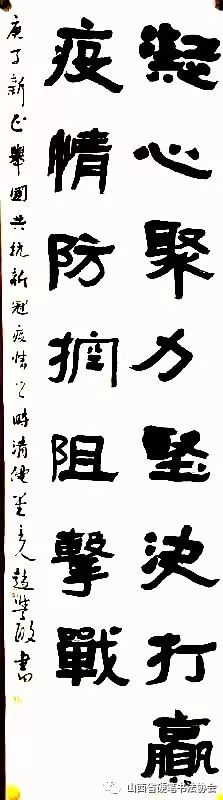 凝心聚力坚决打赢
疫情防控阻擊戰
庚子新正舉國共抗新冠疫情之時清健堂主人趙學政書
山西省硬笔书法协会